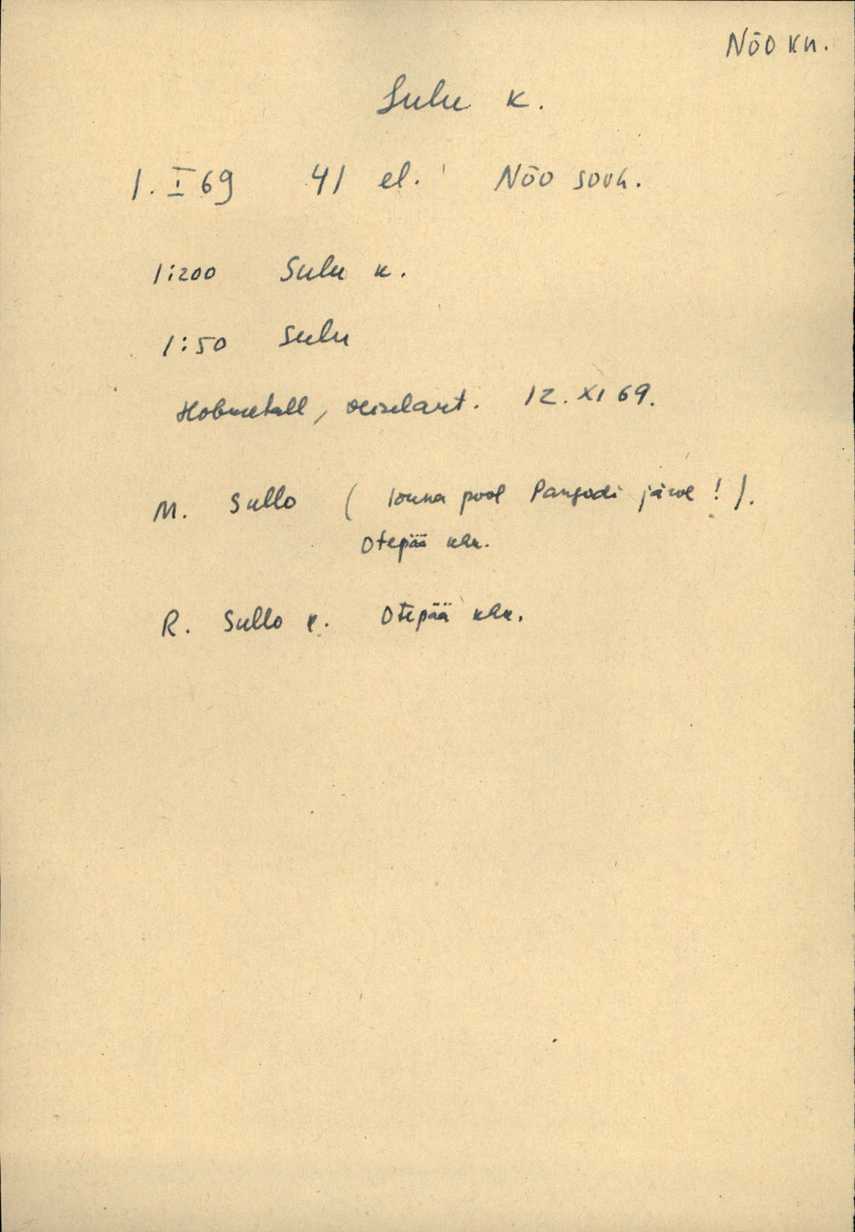 Nõo kn.
Sulu k.
1. I 69 41 el. Nõo sovh.
1:200 Sulu k.
1:50 Sulu
12. XI 69.
M. Sullo ( lõuna pool Pangodi järve ! ).
Otepää khk.
R. Sullo k. Otepää khk.